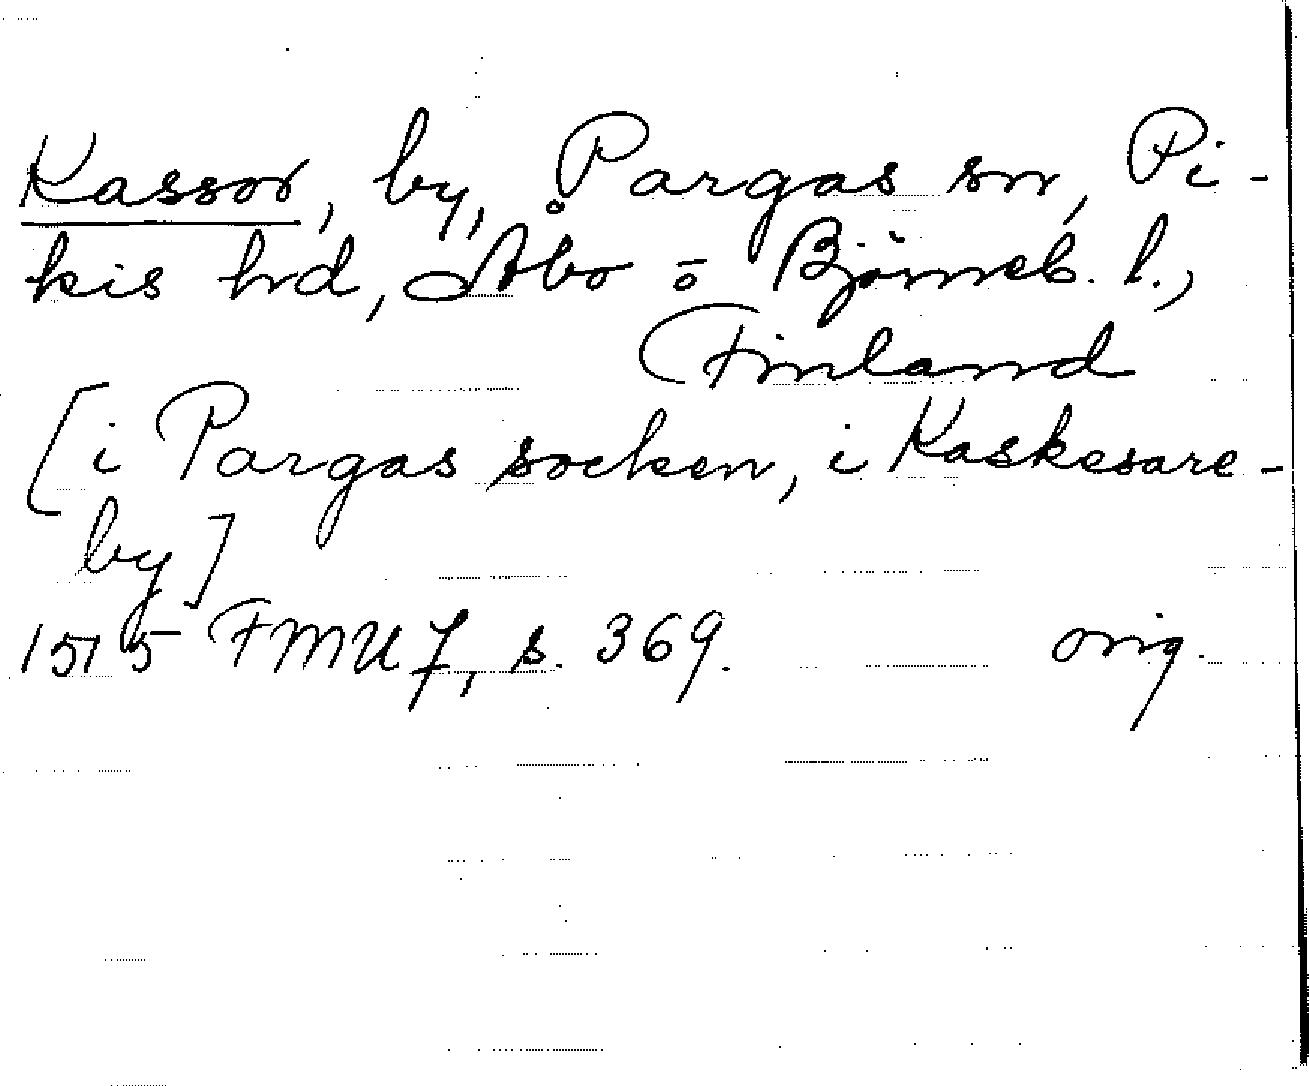 Kassor, by, Pargas sn, Pi-
kis hd, Åbo o Björneb. l.,
Finland
[i Pargas socken, i Kaskesare-
by]
1515 FMU 7, s. 369. orig.